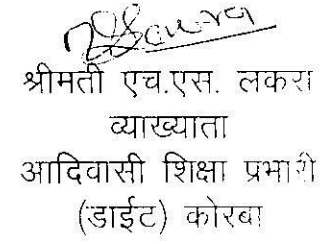 श्रीमती एच.एस. लकरा
व्याख्याता
आदिवासी शिक्षा प्रभारी
(डाईट) कोरबा